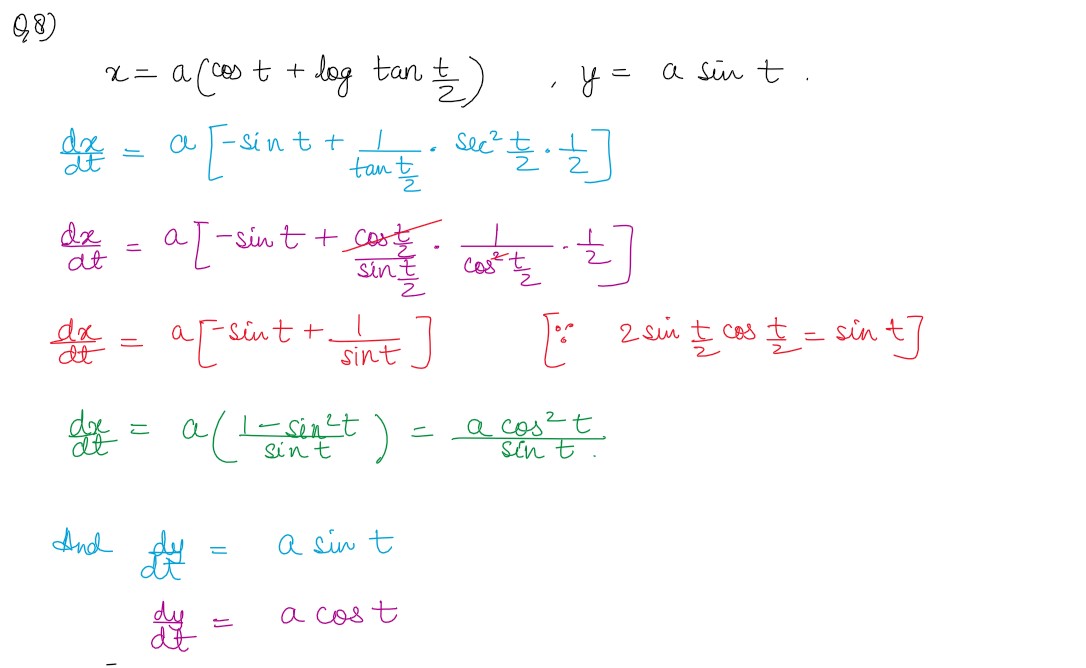 Q8)
x = a(cos t + log tan t/2) , y = a sin t .
dx/dt = a[-sin t + 1/(tan t/2) · sec² t/2 · 1/2]
dx/dt = a[-sin t + (cos t/2)/(sin t/2) · 1/(cos² t/2) · 1/2]
dx/dt = a[-sin t + 1/sin t] [∵ 2 sin t/2 cos t/2 = sin t]
dx/dt = a((1 - sin² t)/sin t) = a cos² t/sin t .
And dy/dt = a sin t
dy/dt = a cos t